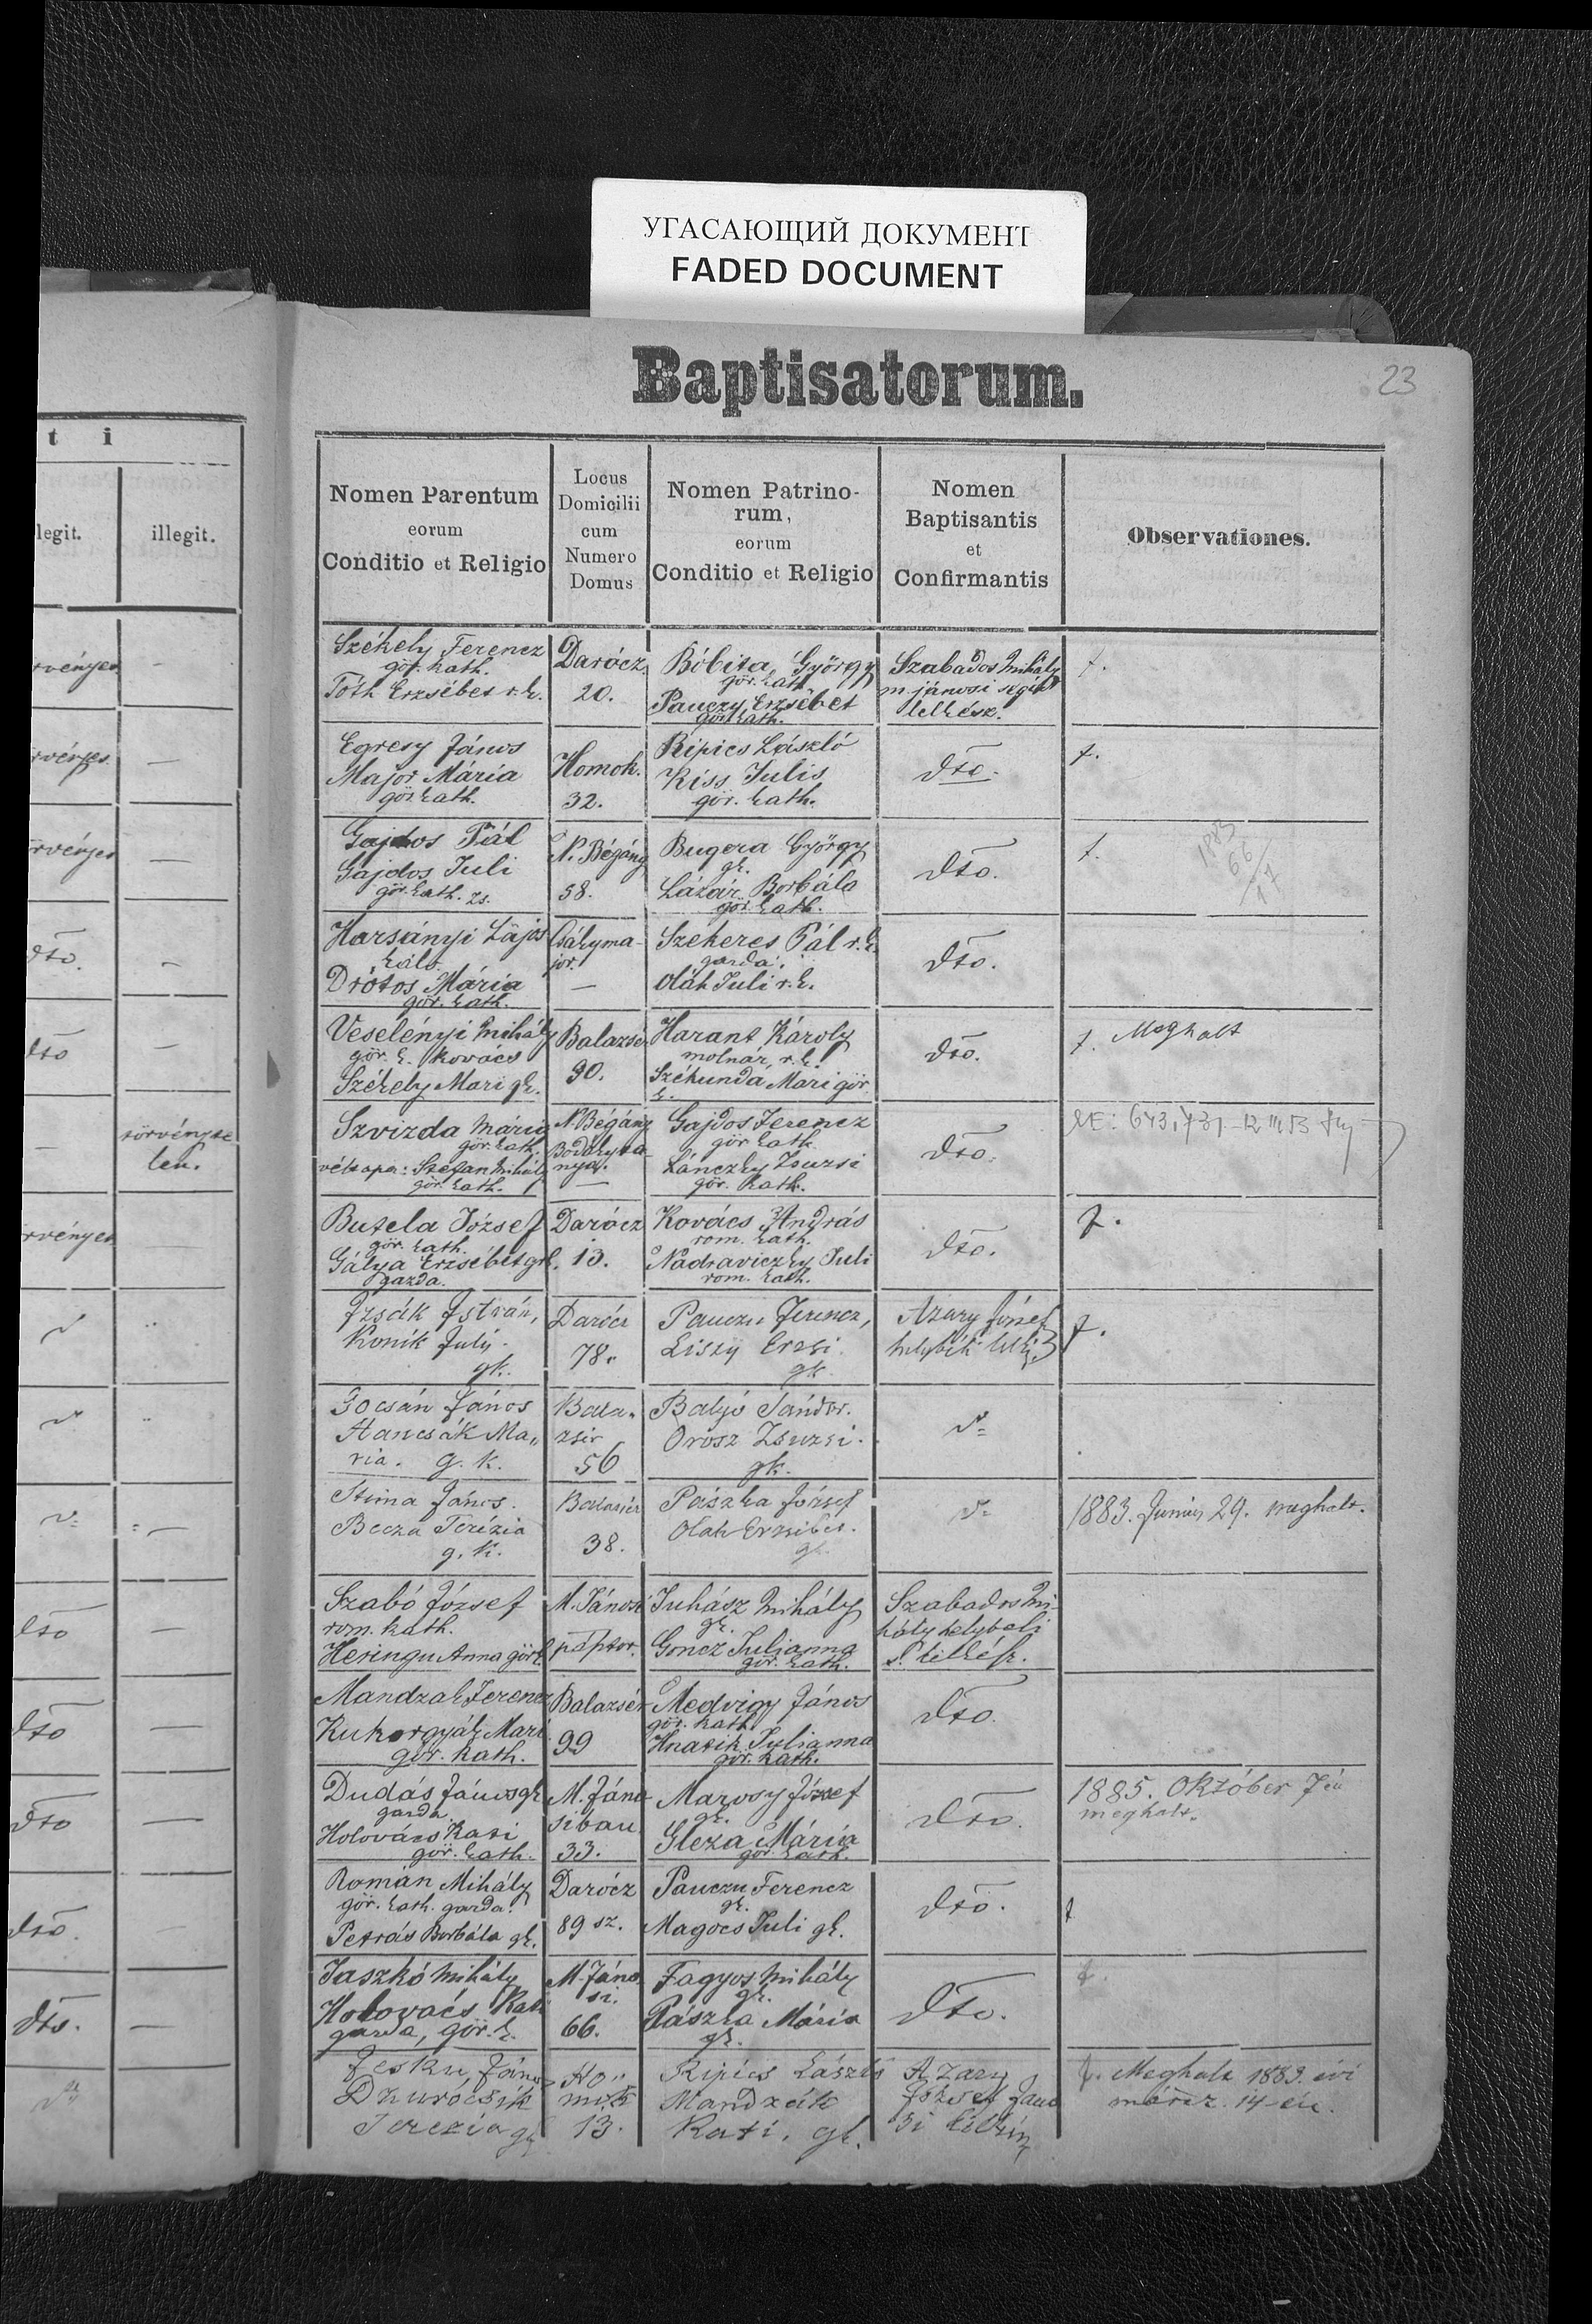 УГАСАЮЩИЙ ДОКУМЕНТ
FADED DOCUMENT
Baptisatorum.
23
t i
legit.
illegit.
Nomen Parentum
eorum
Conditio et Religio
Locus
Domicilii
cum
Numero
Domus
Nomen Patrino-
rum,
eorum
Conditio et Religio
Nomen
Baptisantis
et
Confirmantis
Observationes.
Székely Ferencz
gör. kath.
Tóth Erzsébet r. k.
Darócz
20.
Bóbita György
gör. kath.
Pauczu Erzsébet
gör. kath.
Szabados Mihály
m. jánosi segéd
lelkész.
†.
Egresy János
Major Mária
gör. kath.
Homok.
32.
Ripics László
Kiss Julis
gör. kath.
dto.
†.
Gajdos Pál
Gajdos Juli
gör. kath. zs.
N. Bégány
58.
Bugera György
gk.
Lázár Borbála
gör. kath.
dto.
†.
1883
66
17
Harsányi Lajos
kálv.
Drótos Mária
gör. kath.
Csákyma-
jor.
—
Szekeres Pál r. k.
gazda,
Oláh Juli r. k.
dto.
Veselényi Mihály
gör. k. kovács
Székely Mari gk.
Balazsér
90.
Harant Károly
molnár, r. k.
Székunda Mari gör.
k.
dto.
†. Meghalt
törvényte
len.
Szvizda Mária
gör. kath.
vélt apa: Stefan Mihály
gör. kath.
N. Bégány
Bodolyta-
nya.
—
Gajdos Ferencz
gör. kath.
Lánczky Zsuzsi
gör. kath.
dto.
Butela József
gör. kath.
Gálya Erzsébet gk.
gazda.
Darócz
13.
Kovács András
rom. kath.
Nadraviczky Juli
rom. kath.
dto.
†.
Izsák István,
Konik Juli
gk.
Darócz
78.
Pauczu Ferencz,
Liszy Erzsi.
gk.
Azary József
†.
Gocsán János
Hancsák Ma„
ria. g. k.
Bala„
zsér
56
Balyó Sándor.
Orosz Zsuzsi.
gk.
Stima János.
Becza Terézia
g. k.
Balazsér
38.
Pászka József
Oláh Erzsébet.
gk.
1883. Június 29. meghalt.
Szabó József
rom. kath.
Heringu Anna gör k.
M. Jánosi
paptor.
Juhász Mihály
gk.
Goncz Julianna
gör. kath.
Szabados Mi-
hály helybeli
s. lelkész.
Mandzak Ferencz
Kukorgyák Mari
gör. kath.
Balazsér
99
Medvigy János
gör. kath.
Hnatik Julianna
gör. kath.
dto.
Dudás János gk.
gazda
Holovács Kati
gör. kath.
M. Jáno
siban
33.
Marosy József
gk.
Gleza Mária
gör. kath.
dto.
1885. Október 7én
meghalt.
Román Mihály
gör. kath. gazda.
Petrás Borbála gk.
Darócz
89 sz.
Pauczu Ferencz
gk.
Magocs Juli gk.
dto.
†
Jaszkó Mihály
Holovács Kati
gazda, gör. k.
M. Jáno
si.
66.
Fagyos Mihály
gk.
Pászka Mária
gk.
dto.
†.
Jesku János
Dzurocsik
Terézia gk
Ho„
mok
13.
Ripics László
Mandzák
Kati, gk.
Azary
József Jáno
si lelkész
†. Meghalt 1883. évi
márcz. 14-én.